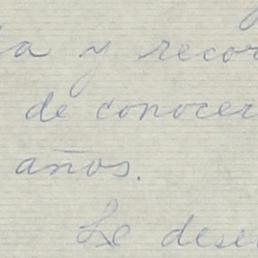 y recor
de conocer
años.
Le dese